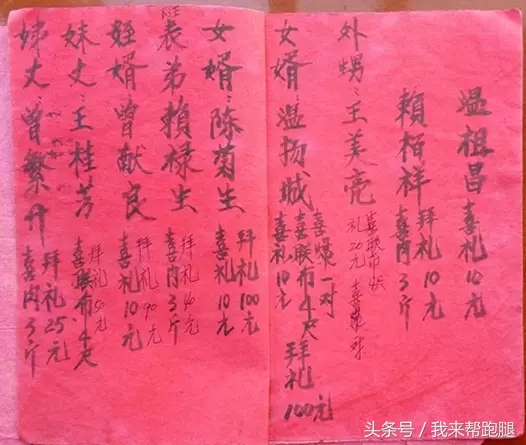 温祖昌 喜礼10元
賴栢祥 拜礼10元 喜肉3斤
外甥：王美亮 喜联布 礼20元
女婿：温扬城 喜爆一对 喜联布4尺 喜礼10元 拜礼100元
女婿：陈菊生 拜礼100元 喜礼10元
表弟賴禄生 拜礼40元 喜肉3斤
姪婿曾献良 拜礼40元 喜礼10元
妹丈：王桂芳 拜礼50元 喜联布4尺
姊丈：曾繁升 拜礼25元 喜肉3斤
头条号 / 我来帮跑腿